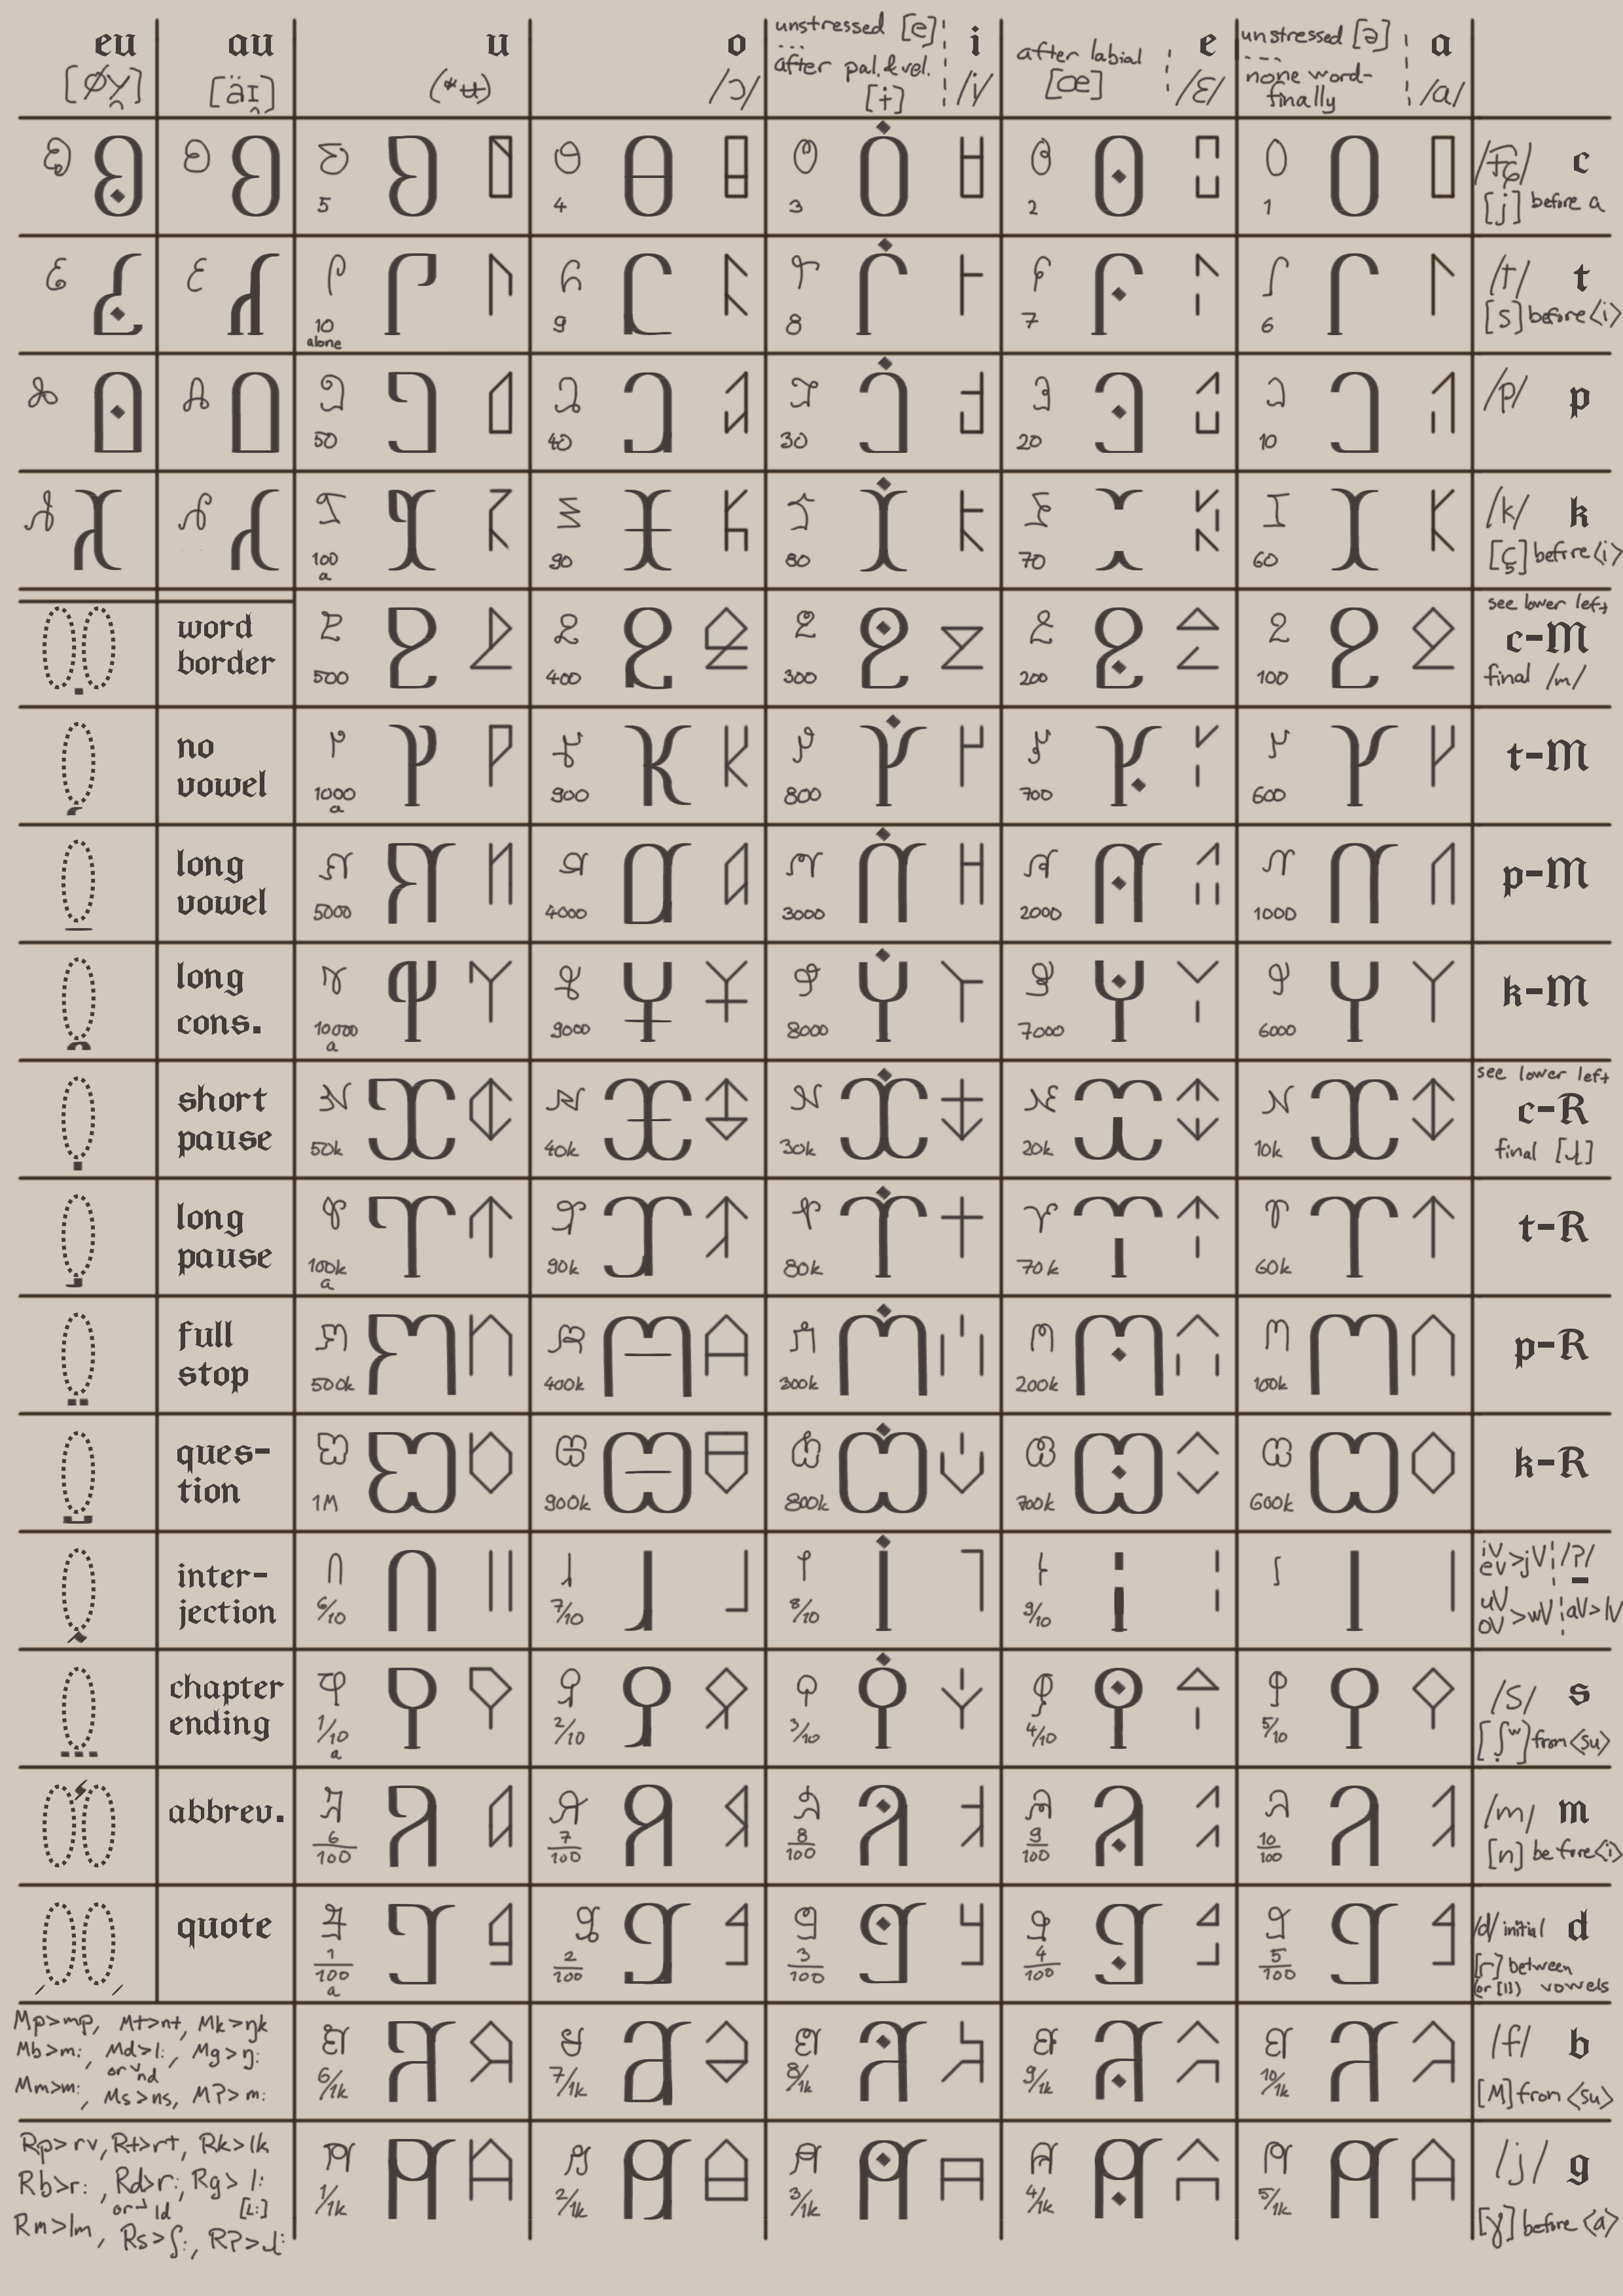 eu au u o unstressed [e] i e unstressed [ə] a
after pal.&vel. after labial none word-finally
[øy̯] [äɪ̯] (*ʉ) /ɔ/ [ɨ] /i/ [œ] /ɛ/ /a/
5 4 3 2 1 c
[j] before a
10 9 8 7 6 /t/ t
alone [s] before <i>
50 40 30 20 10 /p/ p
100 90 80 70 60 /k/ k
a [ç] before <i>
see lower left
word border 500 400 300 200 100 c-M
final /m/
no vowel 1000 900 800 700 600 t-M
a
long vowel 5000 4000 3000 2000 1000 p-M
long cons. 10000 9000 8000 7000 6000 k-M
a
see lower left
short pause 50k 40k 30k 20k 10k c-R
final
long pause 100k 90k 80k 70k 60k t-R
a
full stop 500k 400k 300k 200k 100k p-R
ques-
tion 1M 900k 800k 700k 600k k-R
iV
eV >jV /ʔ/
inter-
jection 6/10 7/10 8/10 9/10 -
uV
oV >wV aV>
chapter ending 1/10 2/10 3/10 4/10 5/10 /s/ s
a from <su>
abbrev. 6/100 7/100 8/100 9/100 10/100 /m/ m
[n] before <i>
quote 1/100 2/100 3/100 4/100 5/100 /d/ initial d
a [r] between
(or [l]) vowels
Mp>mp, Mt>nt, Mk>ŋk
Mb>m:, Md>l:, Mg>ŋ:
or nd
Mm>m:, Ms>ns, Mʔ>m:
6/1k 7/1k 8/1k 9/1k 10/1k /f/ b
[ʍ] from <su>
Rp>rv, Rt>rt, Rk>lk
Rb>r:, Rd>r:, Rg>l:
or ld [ʟ:]
Rm>lm, Rs>ʃ:,
1/1k 2/1k 3/1k 4/1k 5/1k /j/ g
[ɣ] before <a>